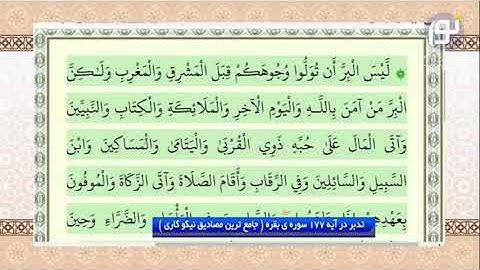 نور
لَّيْسَ الْبِرَّ أَن تُوَلُّوا وُجُوهَكُمْ قِبَلَ الْمَشْرِقِ وَالْمَغْرِبِ وَلَـٰكِنَّ
الْبِرَّ مَنْ آمَنَ بِاللَّـهِ وَالْيَوْمِ الْآخِرِ وَالْمَلَائِكَةِ وَالْكِتَابِ وَالنَّبِيِّينَ
وَآتَى الْمَالَ عَلَىٰ حُبِّهِ ذَوِي الْقُرْبَىٰ وَالْيَتَامَىٰ وَالْمَسَاكِينَ وَابْنَ
السَّبِيلِ وَالسَّائِلِينَ وَفِي الرِّقَابِ وَأَقَامَ الصَّلَاةَ وَآتَى الزَّكَاةَ وَالْمُوفُونَ
بِعَهْدِهِمْ وَالضَّرَّاءِ وَحِينَ
تدبر در آیه ۱۷۷ سوره ی بقره ( جامع ترین مصادیق نیکو کاری )